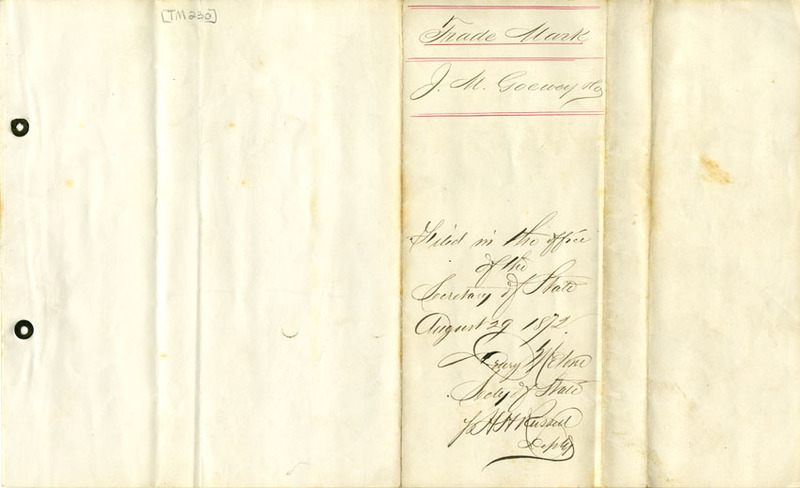 [TM230]
Trade Mark
J. M. Goewey &Co
Filed in the office
of the
Secretary of State
August 29 1872.
Drury Melone
Secty of State
H H Russell
Deputy